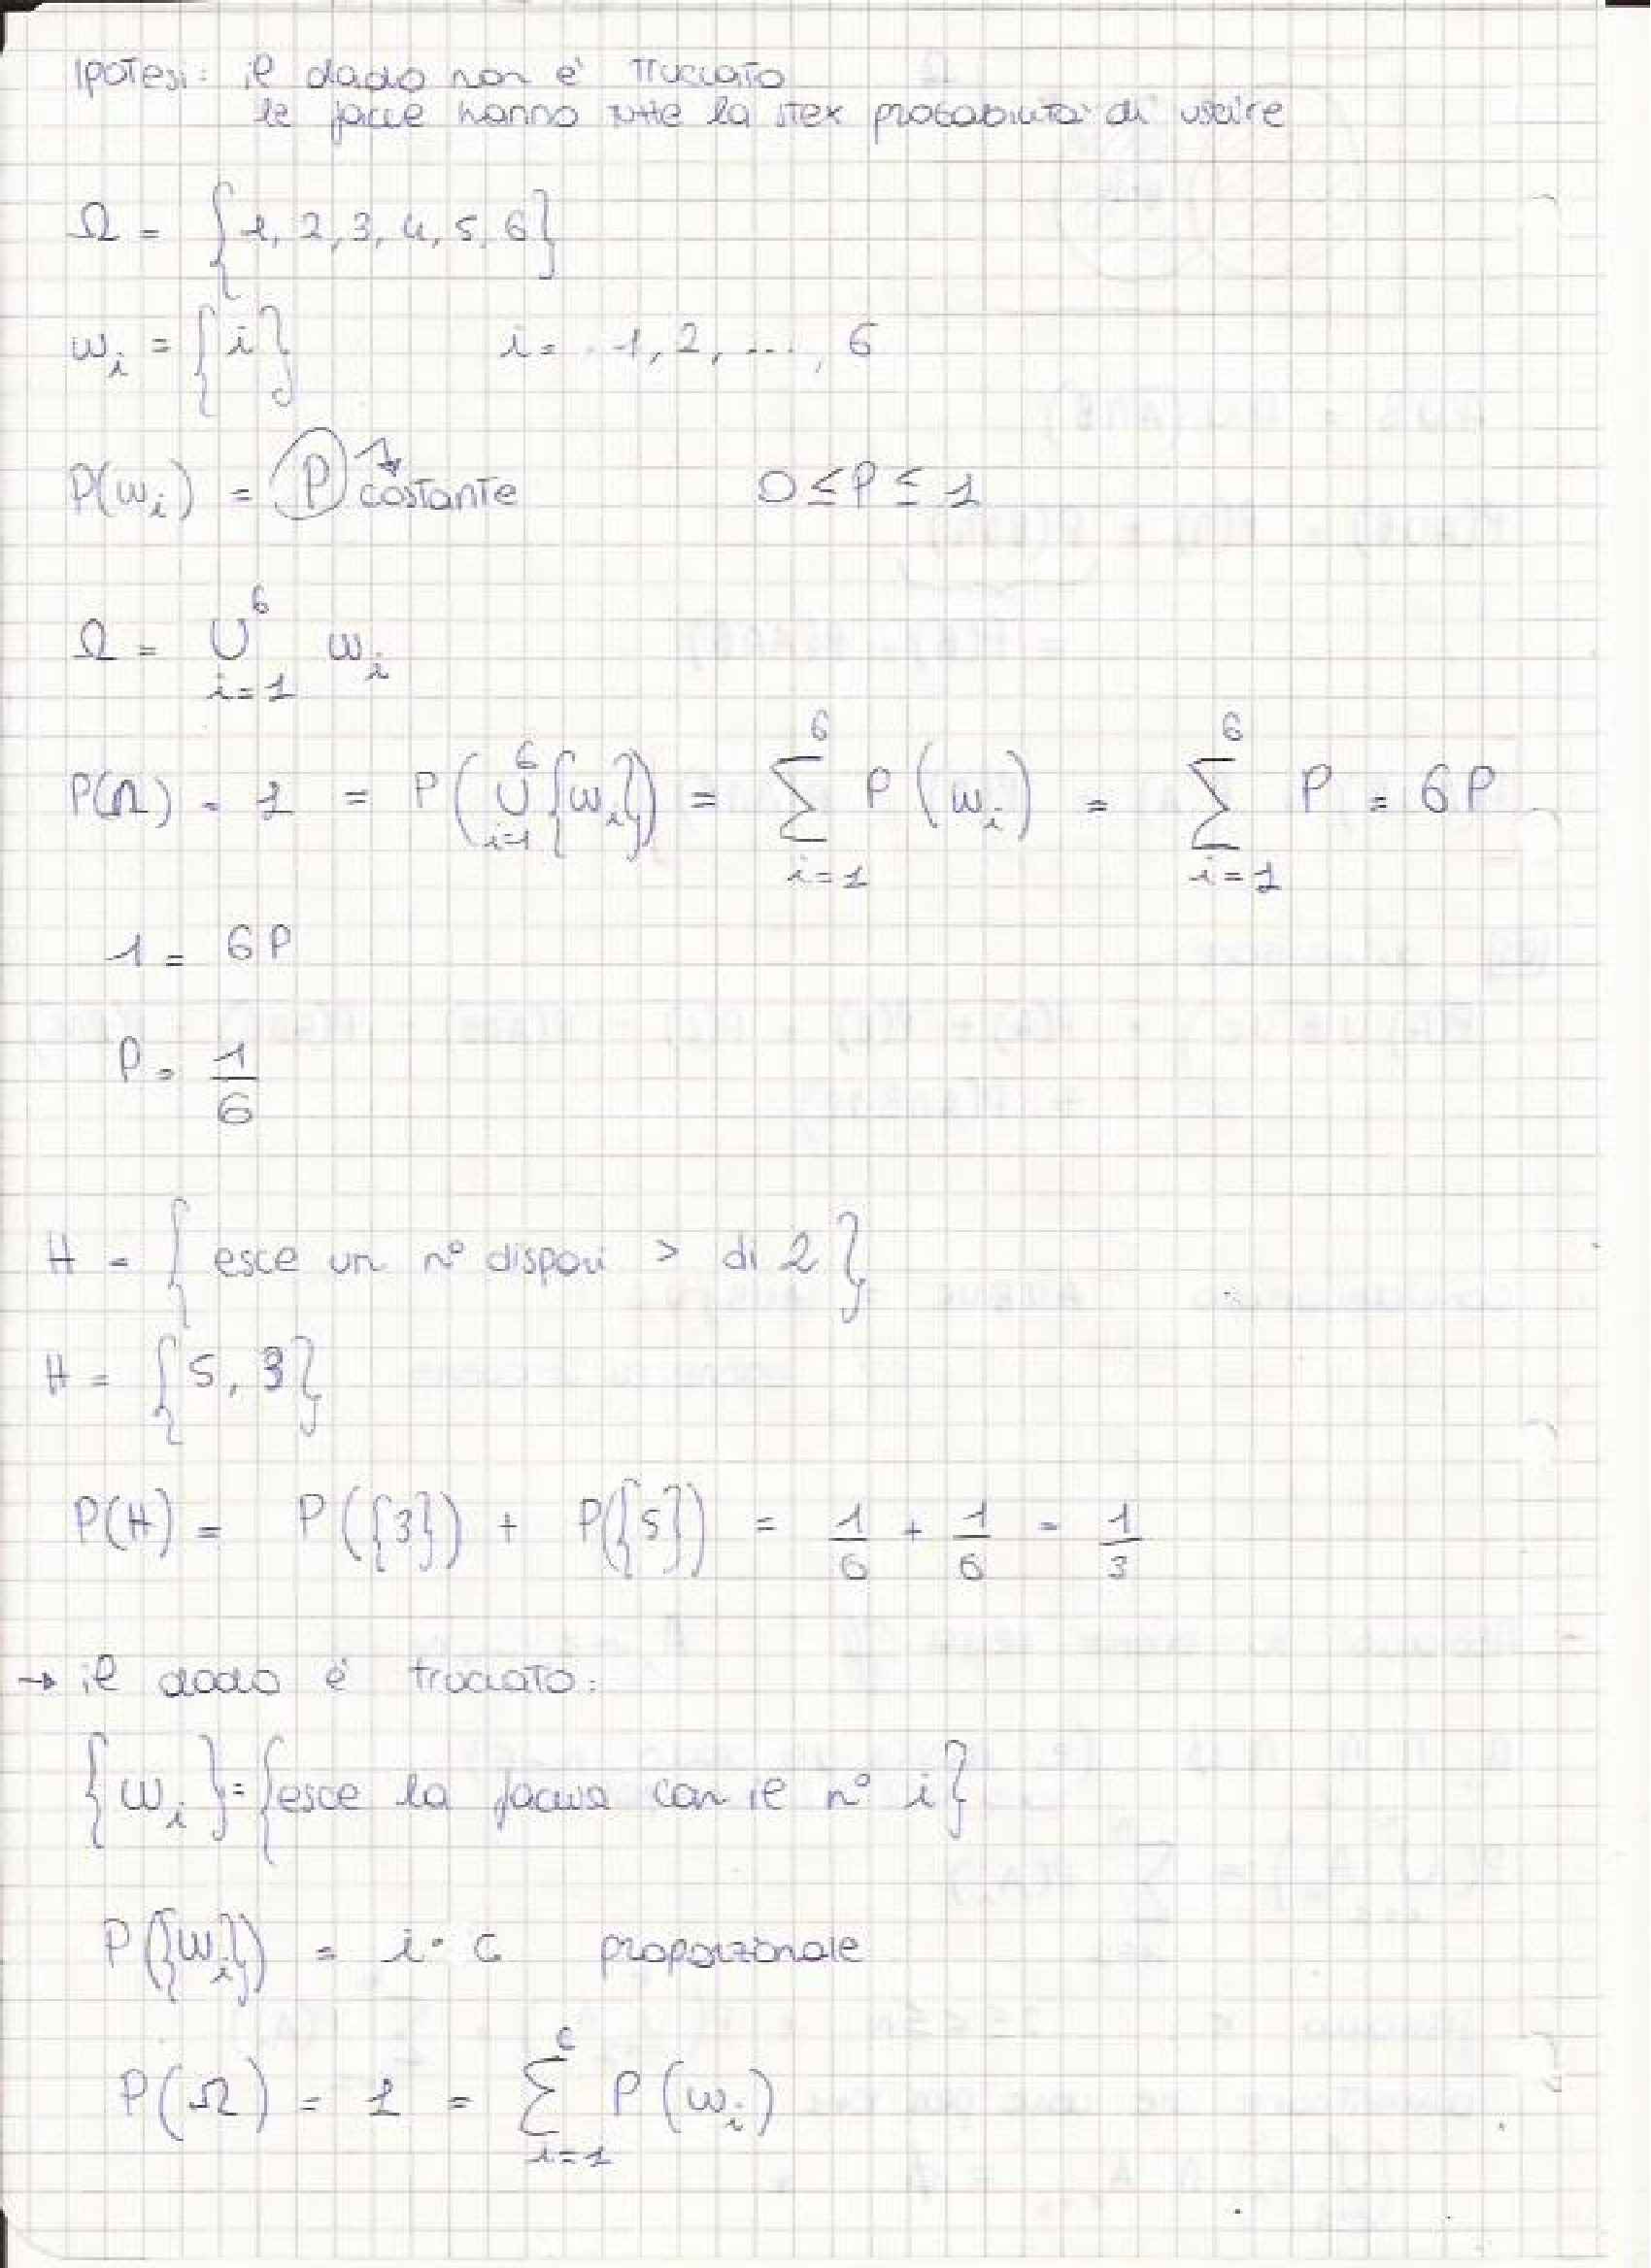 Ipotesi: il dado non è truccato
le facce hanno tutte la stex probabilità di uscire
Ω = {1, 2, 3, 4, 5, 6}
ω_i = {i} i = 1, 2, ..., 6
P(ω_i) = P → costante 0 ≤ P ≤ 1
Ω = ∪_{i=1}^{6} ω_i
P(Ω) = 1 = P(∪_{i=1}^{6} {ω_i}) = ∑_{i=1}^{6} P(ω_i) = ∑_{i=1}^{6} P = 6P
1 = 6P
P = 1/6
H = {esce un n° dispari > di 2}
H = {5, 3}
P(H) = P({3}) + P({5}) = 1/6 + 1/6 = 1/3
→ il dado è truccato:
{ω_i} = {esce la faccia con il n° i}
P({ω_i}) = i · c proporzionale
P(Ω) = 1 = ∑_{i=1}^{6} P(ω_i)